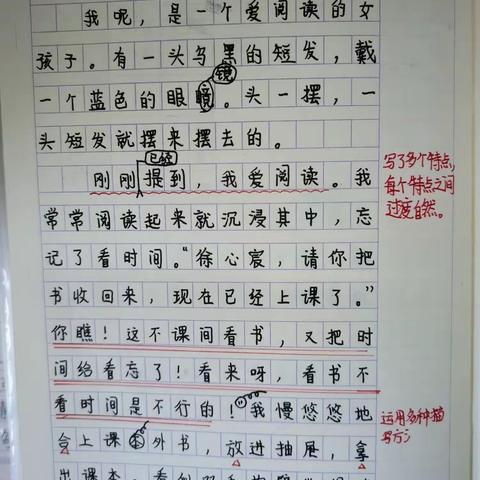 我呢，是一个爱阅读的女
孩子。有一头乌黑的短发，戴
镜
一个蓝色的眼。头一摆，一
头短发就摆来摆去的。
已经
刚刚提到，我爱阅读。我
常常阅读起来就沉浸其中，忘
记了看时间。“徐心宸，请你把
书收回来，现在已经上课了。”
你瞧！这不课间看书，又把时
间给看忘了！看来呀，看书不
看时间是不行的！我慢悠悠地
合上课外书，放进抽屉，拿
出课本，
写了多个特点，
每个特点之间
过度自然。
运用多种描
写方